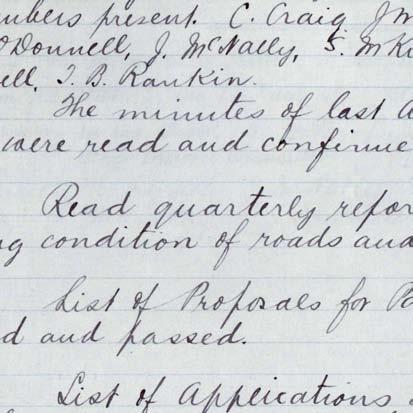 mbers present. C. Craig J M
O'Donnell, J. McNally, S. McK
ell, T. B. Rankin.
The minutes of last
were read and confirme
Read quarterly repor
ng condition of roads and
List of Proposals for Pa
d and passed.
List of Applications